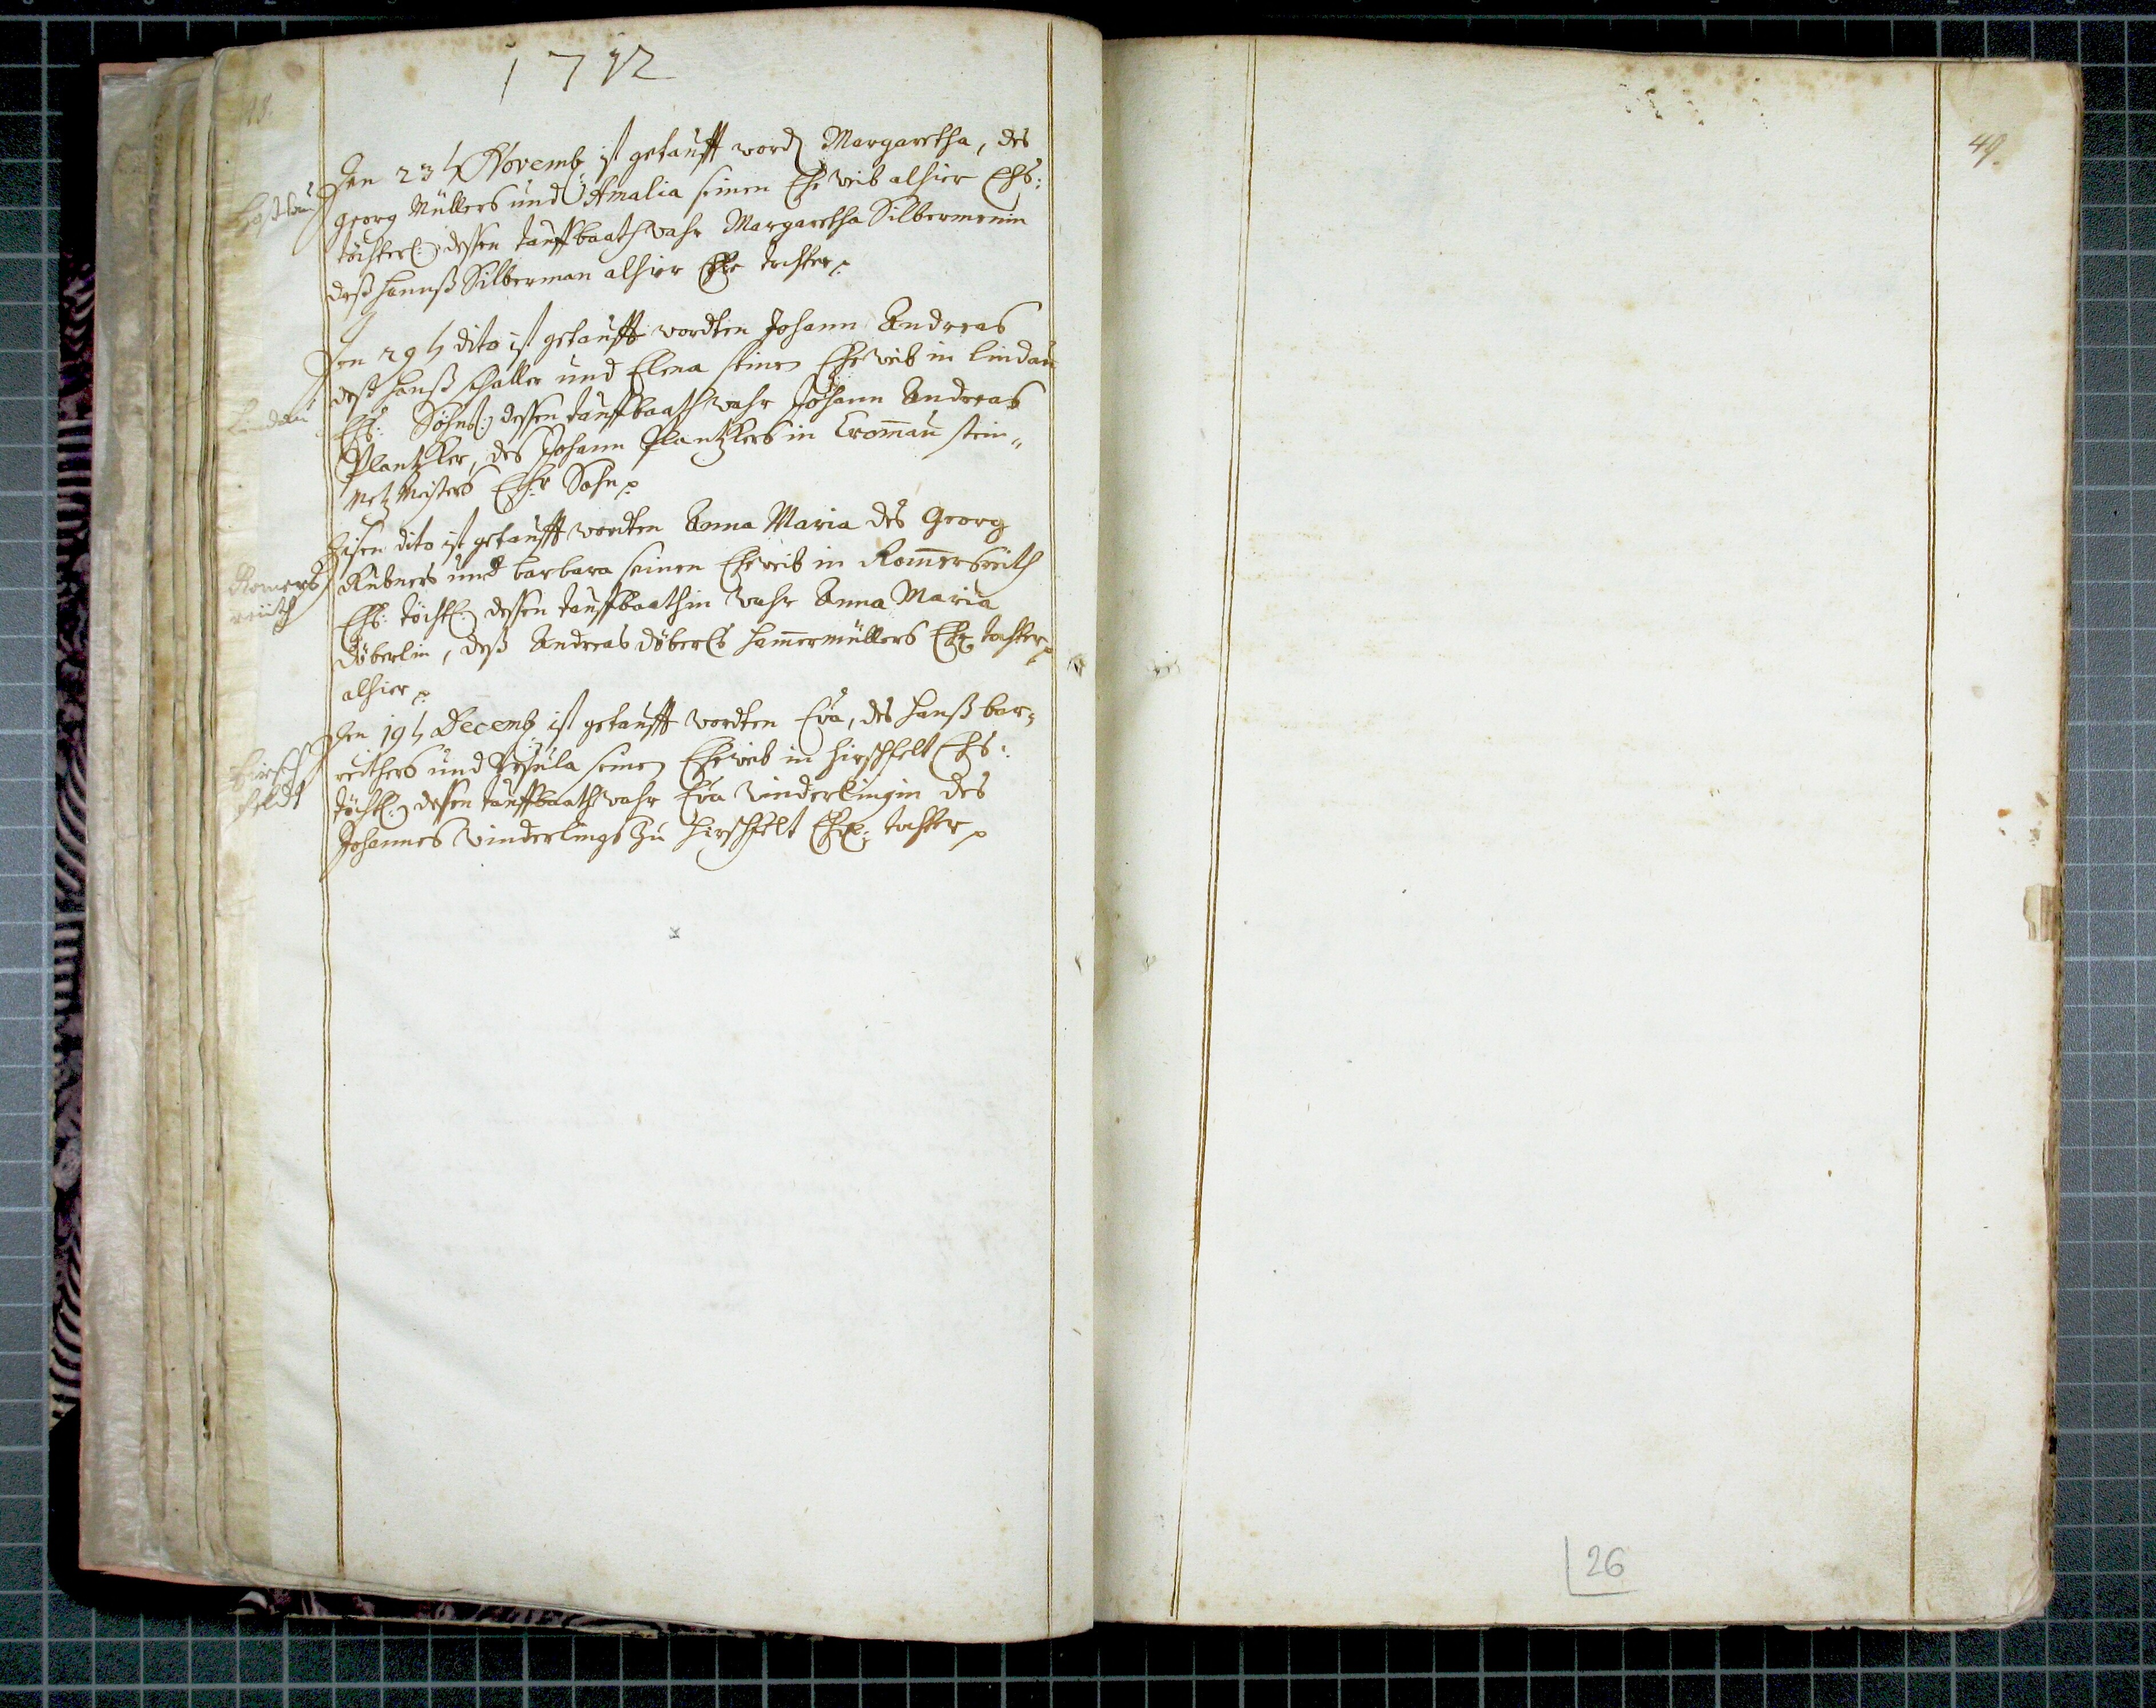 48.
1712
Hostau
Den 23ten Novemb ist getaufft word Margaretha, des
Georg Müllers und Amalia seinen Eheweib alhier Ehs:
töchterl: dessen tauffbaath wahr Margaretha Silbermenin
deß Hannß Silberman alhier Ehe tochter
Lindau
Den 29ten dito ist getaufft wordten Johann Andreas
deß Hanß schaller und Elena seinen Eheweib in Lindau
Ehs: Söhnl: dessen tauffbaath wahr Johann Andreas
Plantzker, des Johann Plantzkers in Cromau stein„
Metz Meisters Ehe Sohn
Romers
reüth
Eisen dito ist getaufft wordten Anna Maria des Georg
Rubners und barbara seinen Eheweib in Romersreith
Ehs: töchtl: dessen tauffbaathin wahr Anna Maria
Döberlin, deß Andreas döberls Hamermüllers Ehe tochter
alhier
Hirsch
feldt
Den 19ten Decemb ist getaufft wordten Eva, des Hanß bar„
reithers und Ursula seinen Eheweib in Hirschfelt Ehs:
töchtl: dessen tauffbaath wahr Eva Winderlingin des
Johannes Winderlings zu Hirschfelt Ehe: tochter
49.
26